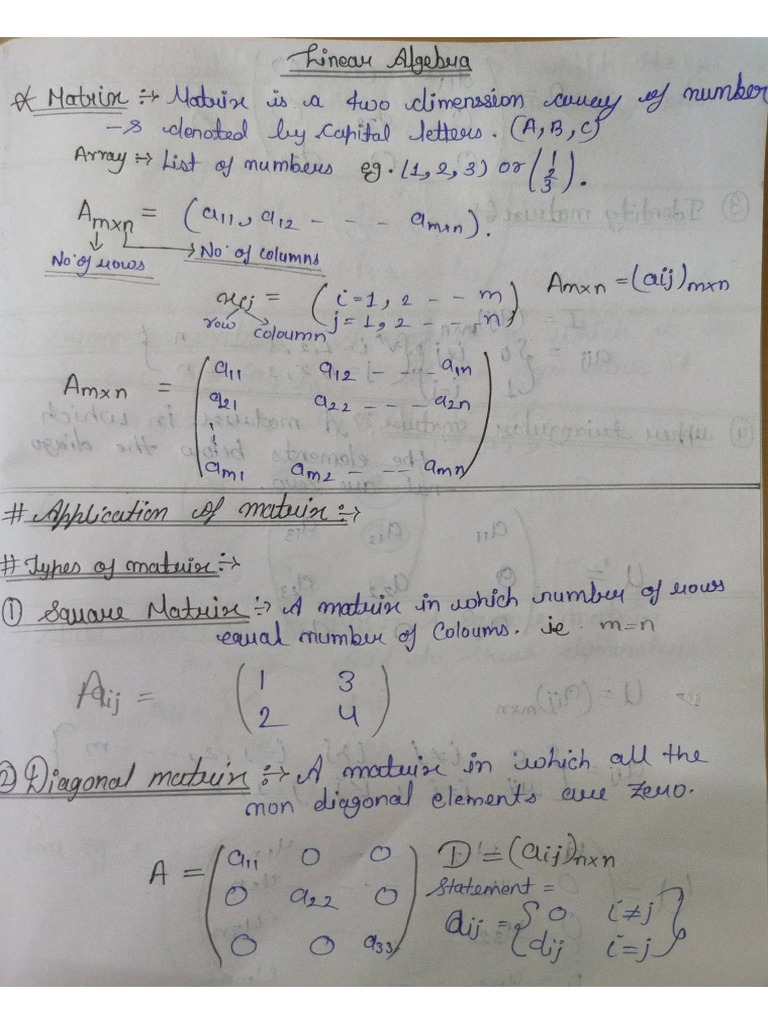 Linear Algebra
* Matrix :→ Matrix is a two dimenssion array of number
-s denoted by capital letters. (A, B, C)
Array :→ List of numbers eg. (1, 2, 3) or (1 2 3).
Amxn = (a11, a12 - - - amxn).
No. of rows → No. of columns
xij = (i=1, 2 - - m Amxn = (aij)mxn
row coloumn j=1, 2 - - n)
Amxn = (a11 a12 - - - a1n
a21 a22 - - - a2n
am1 am2 - - - amn)
# Application of matrix :→
# Types of matrix :→
① Square Matrix :→ A matrix in which number of rows
equal number of Coloums. ie m=n
Aij = (1 3
2 4)
② Diagonal matrix :→ A matrix in which all the
non diagonal elements are zero.
A = (a11 0 0 D = (aij)nxn
0 a22 0 Statement =
0 0 a33) aij = {0 i≠j
dij i=j}